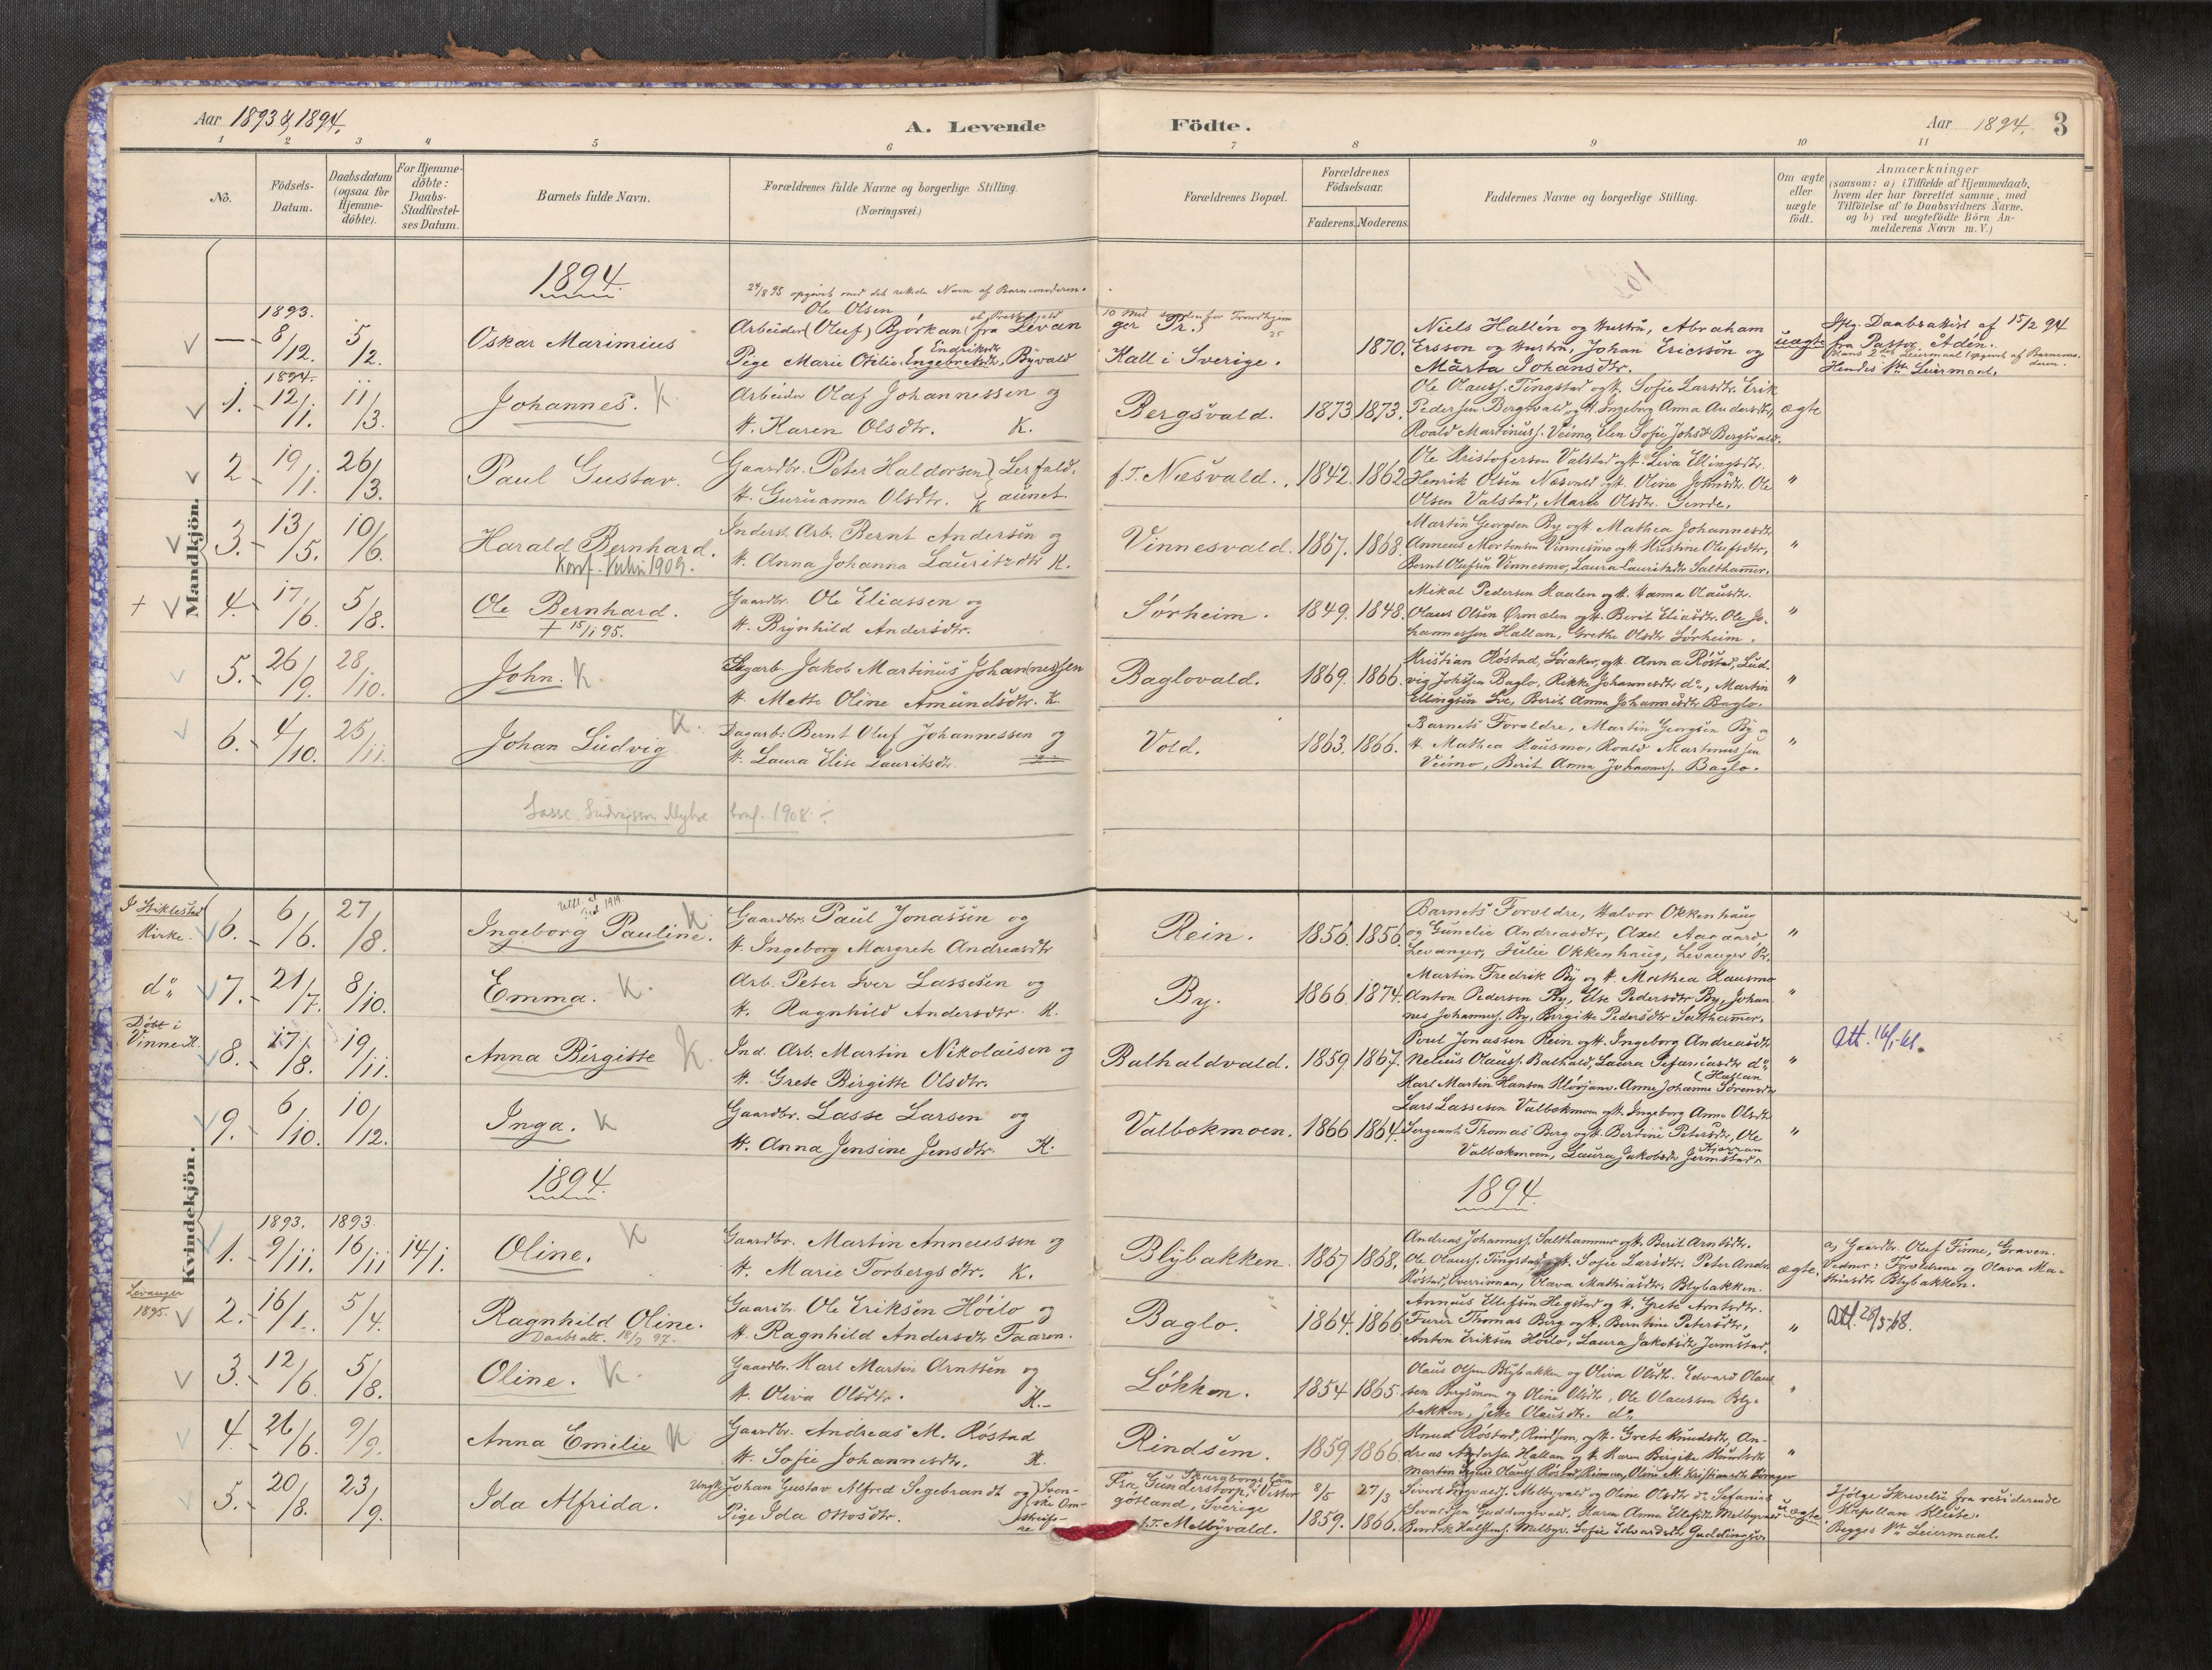 Aar 1893 & 1894.
A. Levende Födte.
Aar 1894. 3
1 2 3 4 5 6 7 8 9 10 11
No.
Födsels-
Datum.
Daabsdatum
(ogsaa for
Hjemme-
döbte).
For Hjemme-
döbte:
Daabs-
Stadfæstel-
ses Datum.
Barnets fulde Navn.
Forældrenes fulde Navne og borgerlige Stilling.
(Næringsvei.)
Forældrenes Bopæl.
Forældrenes
Födselsaar.
Faderens. Moderens.
Faddernes Navne og borgerlige Stilling.
Om ægte
eller
uægte
födt.
Anmærkninger
(saasom: a) i Tilfælde af Hjemmedaab,
hvem der har forrettet samme, med
Tilföielse af to Daabsvidners Navne.
og b) ved uægtefödte Börn An-
melderens Navn m. V.)
Mandkjön.
1894.
24/8 95 opgivet med det rettede Navn af Barnemoderen.
Ole Olsen
1893.
— 8/12. 5/2. Oskar Marimius
Arbeider (Oluf) Björkan fra Levan
ger Pr.
Pige Marie Otilie Engebretsdtr. Byvald
Endriksdtr
Kall i Sverige.
1870.
Niels Hallén og Hustru, Abraham
Ersson og Hustru, Johan Ericsson og
Märta Johansdtr.
uægte
Iflg. Daabsattest af 15/2 94
fra Pastor Adén.
Hans 2det Leiermaal (opgivet af Barnemo-
deren.
Hendes 1ste Leiermaal.
1894.
1. 12/1. 11/3. Johannes. K.
Arbeider Olaf Johannessen og
H. Karen Olsdtr. K.
Bergsvald. 1873 1873.
Ole Olauss. Tingstad og H. Sofie Larsdtr. Erik
Pedersen Bergsvald og H. Ingeborg Anna Andersdtr,
Roald Martinuss. Veimo, Elen Sofie Johsdtr Bergsvald.
ægte
2 19/1. 26/3. Paul Gustav.
Gaardbr. Peter Haldorsen Lerfald,
H. Guruanna Olsdtr. K aunet.
f.T. Næsvald. 1842. 1862
Ole Kristoferson Valstad og H. Liva Ellingsdtr.
Henrik Olsen Næsvald og H. Oline Johnsdtr. Ole
Olsen Valstad, Marie Olsdtr. Gende.
"
3. 13/5. 10/6. Harald Bernhard.
Konf. Vuku 1909.
Inderst. Arb. Bernt Andersen og
H. Anna Johanna Lauritzdtr K.
Vinnesvald. 1867. 1868.
Martin Georgsen By og H. Mathea Johannesdtr
Anneus Mortensen Vinnesmo og H. Kristine Olufsdtr,
Bernt Olufsen Vinnesmo, Laura Lauritsdtr Salthammer.
"
+ 4. 17/6. 5/8. Ole Bernhard.
+ 15/1 95.
Gaardbr. Ole Eliassen og
H. Brynhild Andersdtr.
Sørheim. 1849. 1848.
Mikal Pedersen Haalen og H. Hanna Olausdtr.
Olaus Olsen Ørmælen og H. Berit Eliasdtr. Ole Jo-
hannessen Hallan, Grethe Olsdtr Sørheim.
"
5. 26/9. 28/10. John. K.
Dagarb. Jakob Martinus Johan(nes)sen
H. Mette Oline Amundsdtr. K.
Baglovald. 1869. 1866.
Kristian Röstad, Söraker, og H. Anna Röstad, Lud-
vig Johssen Baglo, Rikke Johannesdtr do., Martin
Ellingsen Sve, Berit Anna Johannesdtr Baglo.
"
6. 4/10. 25/11. Johan Ludvig K.
Dagarb. Bernt Oluf Johannessen og
H. Laura Elise Lauritsdtr.
Vold. 1863. 1866.
Barnets Forældre, Martin Georgsen By og
H. Mathea Hausmo, Roald Martinussen
Veimo, Berit Anna Johannss. Baglo.
"
Lasse Ludvigsen Myhre konf. 1908
Kvindekjön.
I Stiklestad
Kirke.
6. 6/6. 27/8. Ingeborg Pauline. K
Gaardbr. Paul Jonassen og
H. Ingeborg Margrete Andreasdtr
Rein. 1856. 1856.
Barnets Forældre, Halvor Okkenhaug
og Gunelie Andreasdtr, Axel Aagaard
Levanger, Julie Okkenhaug, Levanger Pr.
"
do. 7. 21/7. 8/10. Emma. K.
Arb. Peter Iver Lassesen og
H. Ragnhild Andersdtr. K.
By. 1866. 1874.
Martin Fredrik By og H. Mathea Hausmo
Anton Pedersen By, Else Pedersdtr By, Johan-
nes Johannss. By, Birgitte Pedersdtr Salthammer.
"
Döbt i
Vinne K.
8. 17/8. 19/11. Anna Birgitte K
Ind. Arb. Martin Nikolaisen og
H. Grete Birgitte Olsdtr.
Balhaldvald. 1859 1867.
Poul Jonassen Rein og H. Ingeborg Andreasdtr
Nelius Olauss. Balhald, Laura Sefaniasdtr do.
(Hallan
Karl Martin Hansen Kløvjan, Anne Johanne Sörensdtr
"
9. 6/10. 10/12. Inga. K
Gaardbr. Lasse Larsen og
H. Anna Jensine Jensdtr. K.
Valbækmoen. 1866 1864.
Lars Lassesen Valbækmoen og H. Ingeborg Anna Olsdtr
Sergeant Thomas Berg og H. Berntine Petersdtr, Ole
Valbækmoen, Laura Jakobsdtr Jermstad.
"
1894.
1894.
1893. 1893.
1. 9/11. 16/11 14/1. Oline. K
Gaardbr. Martin Anneussen og
H. Marie Torbergsdtr. K.
Blybakken. 1867 1868.
Andreas Johanness. Salthammer og H. Berit Arntsdtr.
Ole Olauss. Tingstad og H. Sofie Larsdtr. Peter Andr.
Röstad, Overrinnan, Olava Mathiasdtr. Blybakken.
ægte.
a) Gaardbr. Oluf Finne, Graven.
Vedner: Forældrene og Olava Ma-
thiasdtr Blybakken.
Levanger
1895.
2. 16/1. 5/4. Ragnhild Oline.
Daabsatt. 18/3 97.
Gaardbr. Ole Eriksen Höilo og
H. Ragnhild Andersdtr Faaren.
Baglo. 1864. 1866
Annæus Ellefsen Hegstad og H. Grete Arntsdtr.
Furer Thomas Berg og H. Berntine Petersdtr,
Anton Eriksen Höilo, Laura Jakobsdtr Jermstad.
"
Att. 28/5-68.
3. 12/6. 5/8. Oline. K.
Gaardbr. Karl Martin Arntsen og
H. Oliva Olsdtr. K.
Løkken. 1854 1865.
Olaus Olsen Blybakken og Oliva Olsdtr. Edvard Olaus-
sen Bergsmoen og Oline Olsdtr, Ole Olaussen Bly-
bakken, Jette Olausdtr. do.
"
4. 26/6. 9/9. Anna Emilie K
Gaardbr. Andreas M. Röstad
H. Sofie Johannesdtr. K.
Rindsem. 1859 1866.
Knud Röstad, Rindsem, og H. Grete Knudsdtr, An-
dreas Andersen Hallan og H. Karen Birgitte Knudsdtr
"
5. 20/8. 23/9. Ida Alfrida.
Ungk. Johan Gustav Alfred Segebrandt og Sven-
Pige Ida Ottosdtr. ske Om-
streife-
re
Fra Gunderstorp i Vester
Skaraborgs Län
götland, Sverige
f.T. Melbyvald.
8/5 27/3
1859. 1866.
uægte.
Ifølge Skrivelse fra residerende
Kapellan Klüwer.
Begges 1ste Leiermaal.